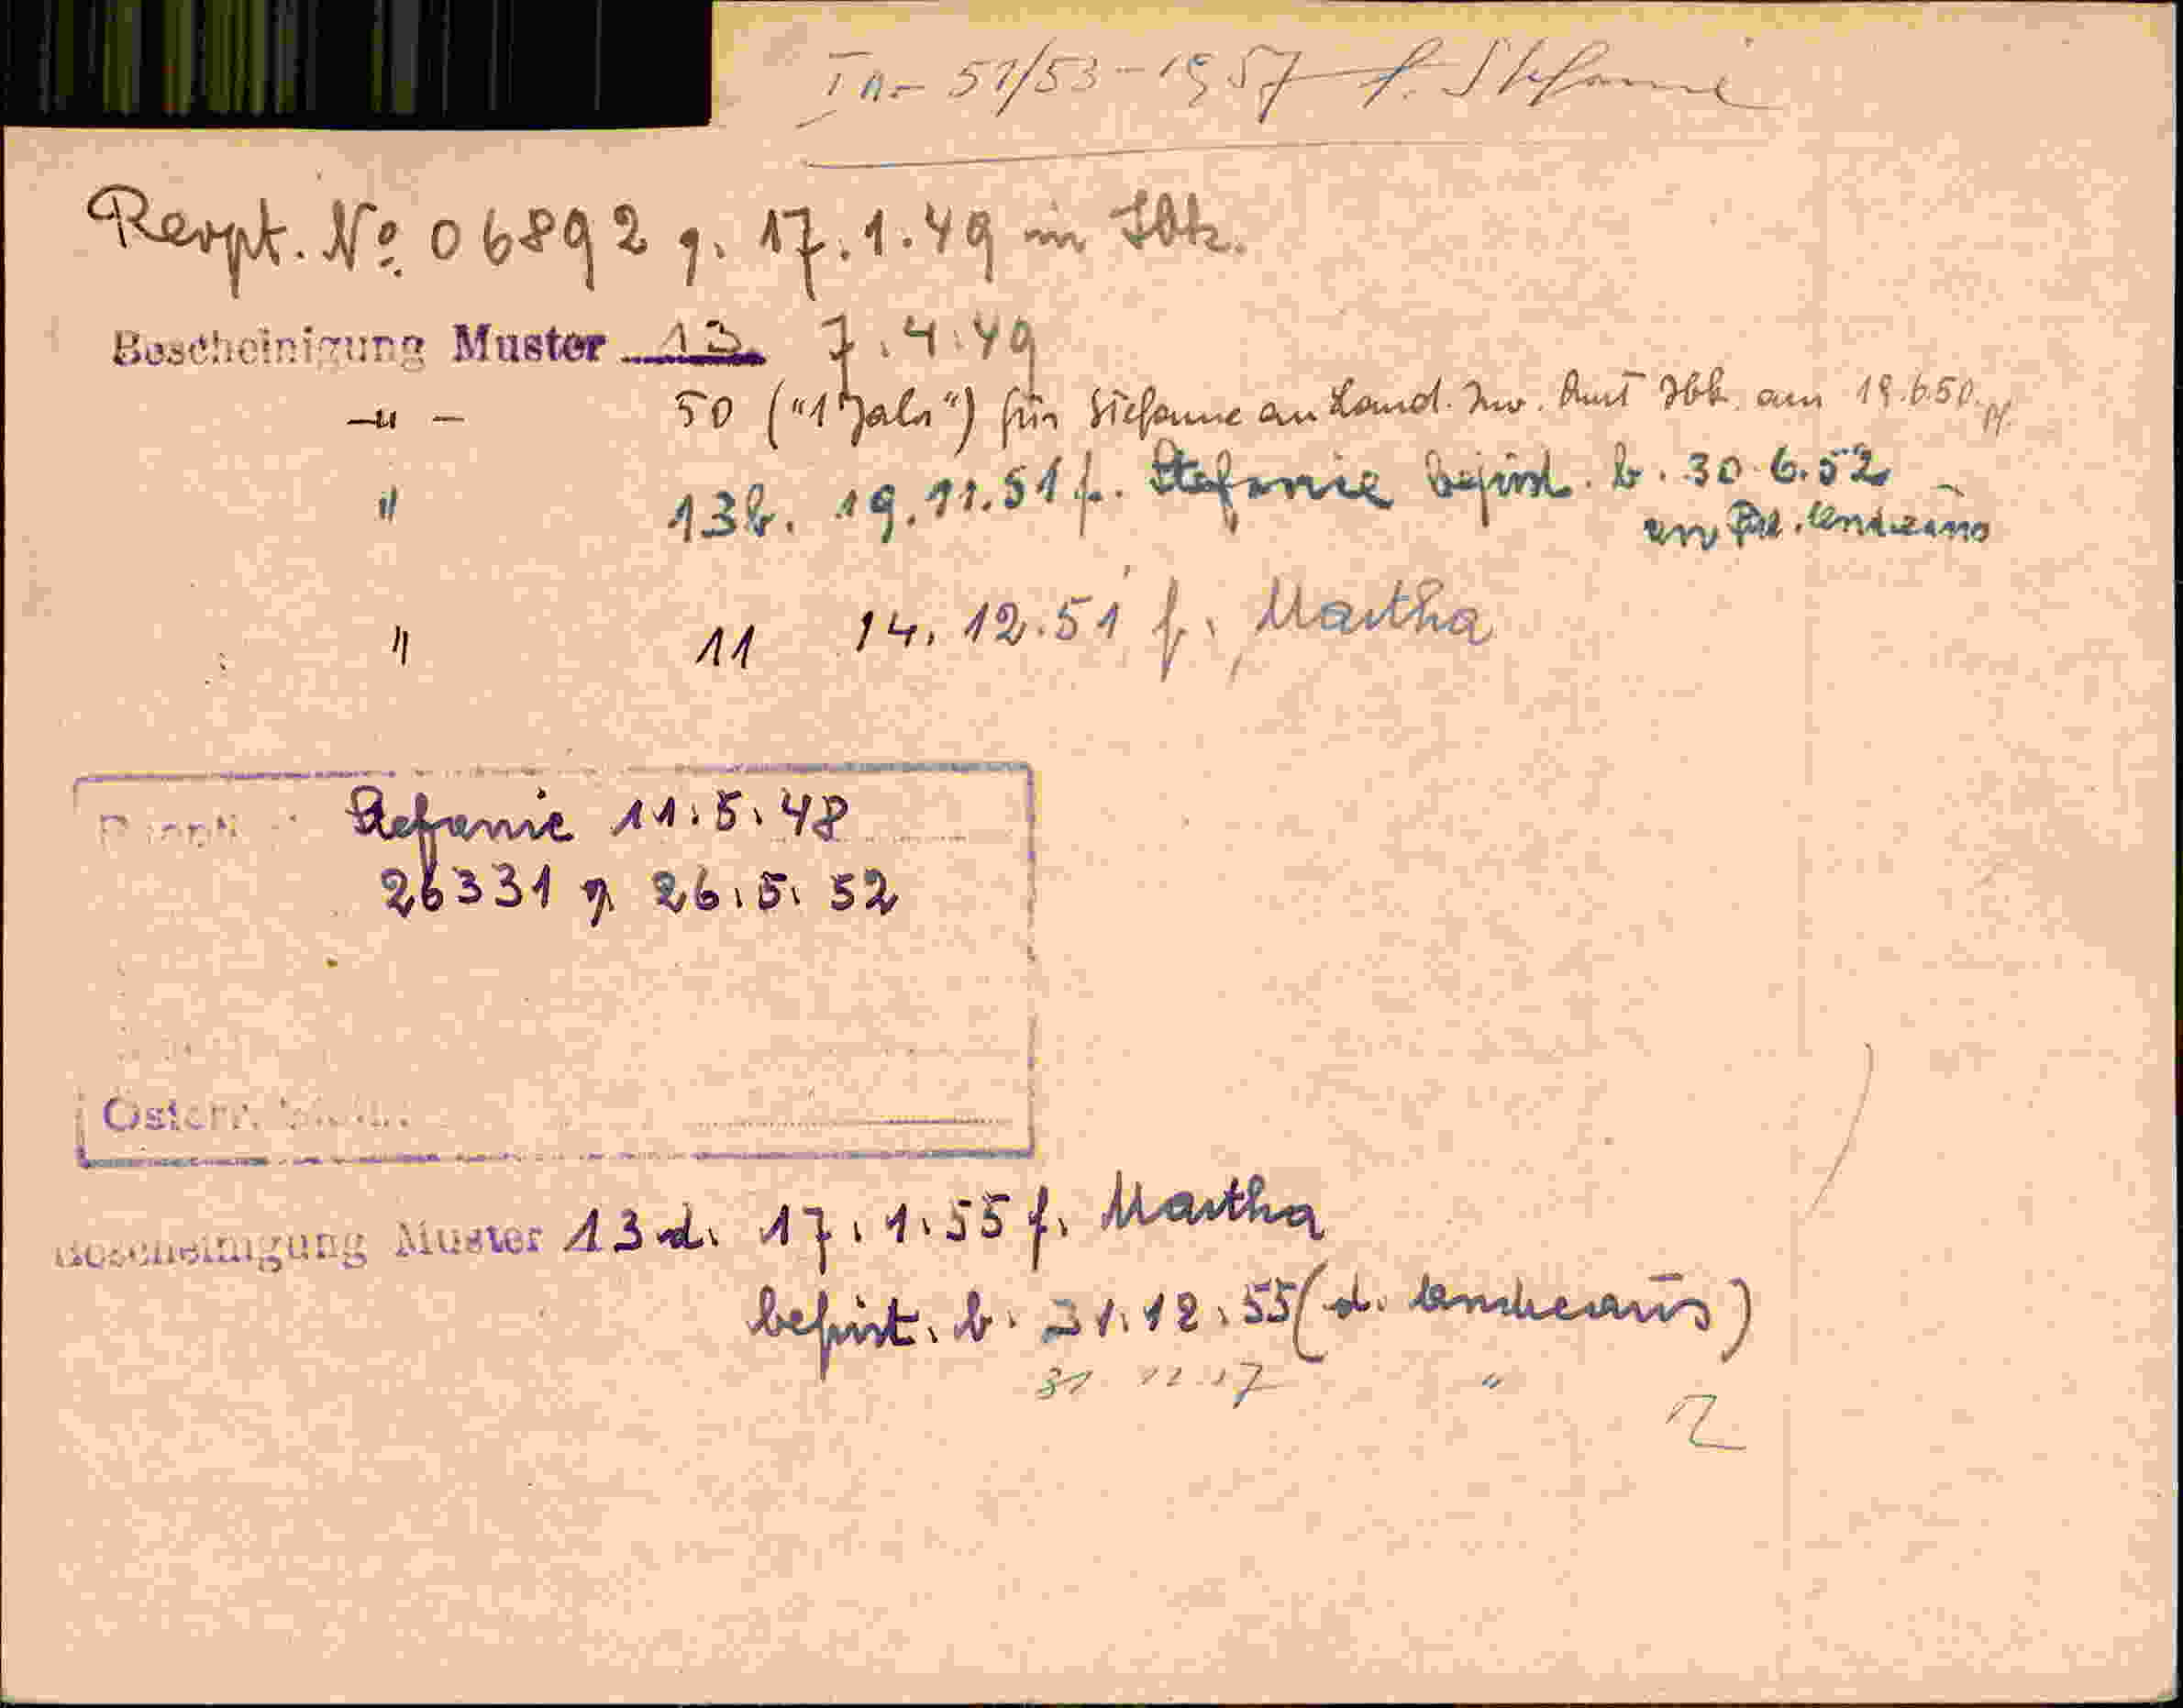 51/53-1957 f. Stefanie
Rexpt. № 06892 g. 17.1.49 in Ibk.
Bescheinigung Muster 13 7.4.49
-"- 50 ("1 Jahr") für Stefanie an Land. Inv. Amt Ibk. am 19.6.50.
" 13b. 19.11.51 f. Stefanie befrist. b. 30.6.52
an
" 11 14.12.51 f. Martha
Stefanie 11.5.48
26331 g. 26.5.52
Österr.
Bescheinigung Muster 13d. 17.1.55 f. Martha
befrist. b. 31.12.55 (d.
"